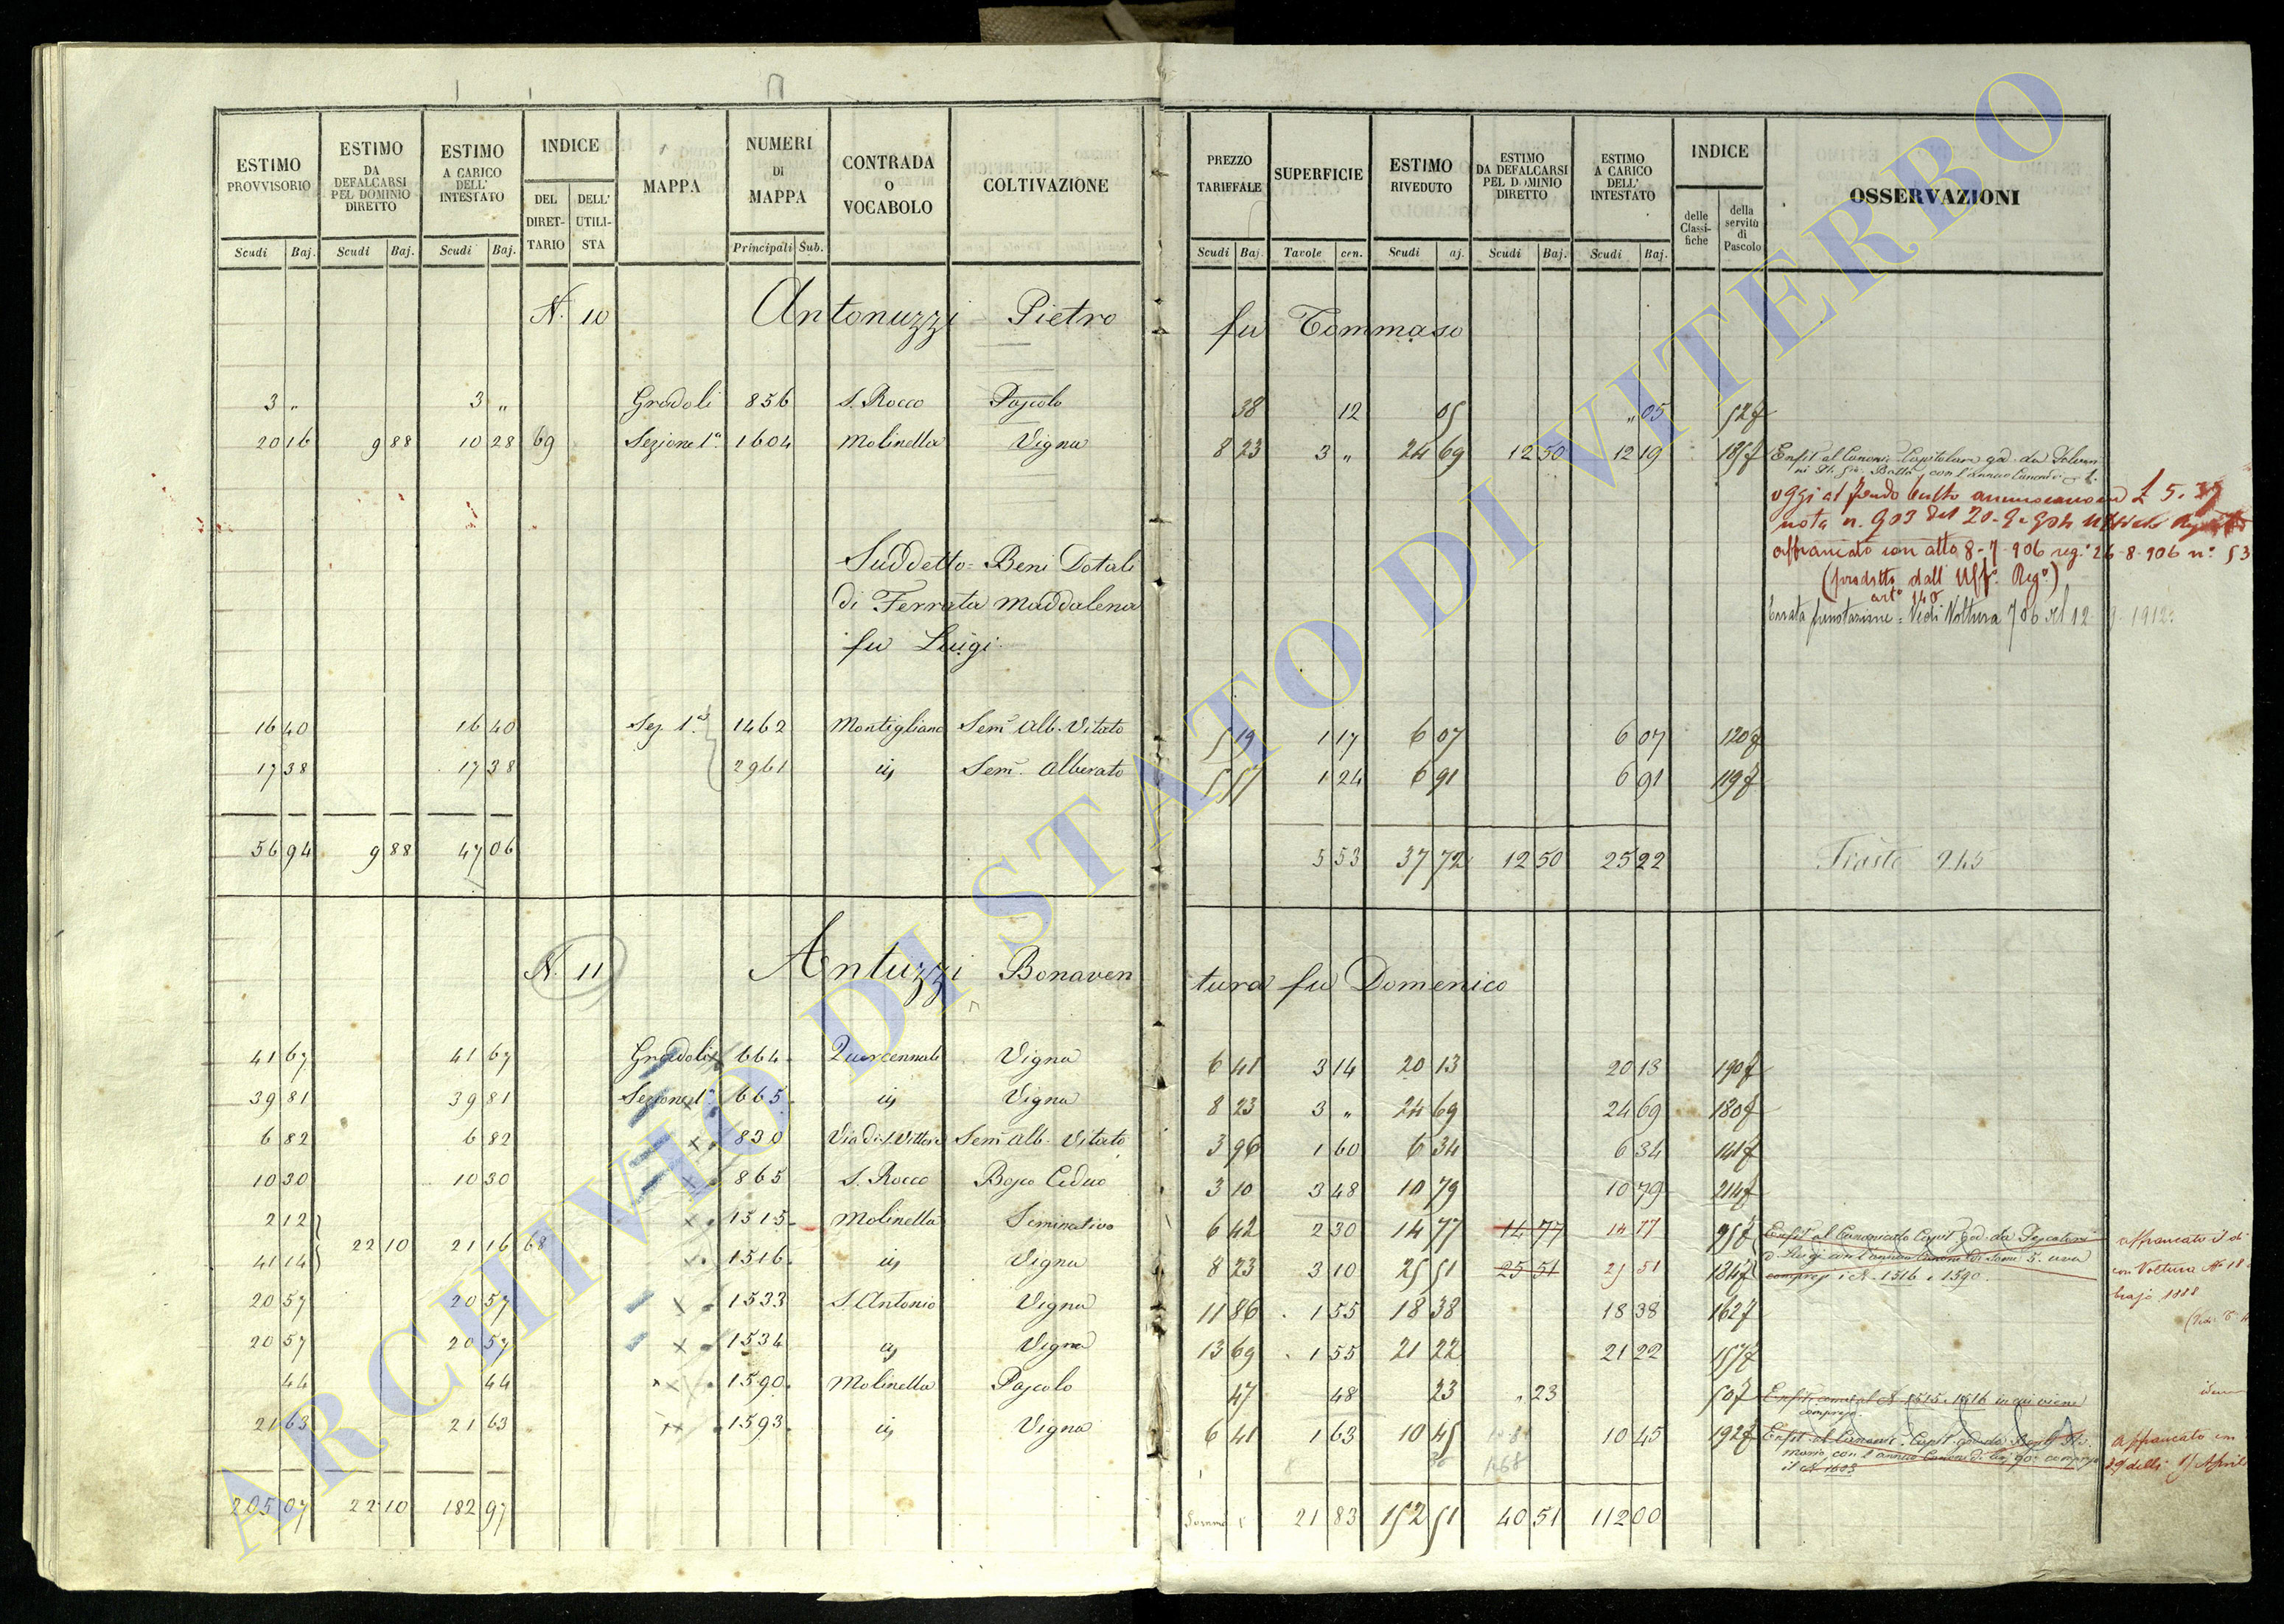 ESTIMO PROVVISORIO Scudi Baj.
ESTIMO DA DEFALCARSI PEL DOMINIO DIRETTO Scudi Baj.
ESTIMO A CARICO DELL' INTESTATO Scudi Baj.
INDICE DEL DIRET-TARIO DELL' UTILI-STA
MAPPA
NUMERI DI MAPPA Principali Sub.
CONTRADA O VOCABOLO
COLTIVAZIONE
PREZZO TARIFFALE Scudi Baj
SUPERFICIE Tavole cen.
ESTIMO RIVEDUTO Scudi aj.
ESTIMO DA DEFALCARSI PEL DOMINIO DIRETTO Scudi Baj.
ESTIMO A CARICO DELL' INTESTATO Scudi Baj.
INDICE delle Classi-fiche della servitù di Pascolo
OSSERVAZIONI
N. 10 Antonuzzi Pietro fu Tommaso
3 " 3 " Gradoli 856 S. Rocco Pascolo 38 12 05 " 05 52
20 16 9 88 10 28 69 Sezione 1a. 1604 Molinella Vigna 8 23 3 " 24 69 12 50 12 19 185 Enfit. al Canoni. Capitolare god. da
con l'annuo Canone
oggi al annuo canone £ 5.
nota n. 903 del 20-9-904
affrancato con atto 8-7-906 reg.° 26-8-906 n°. 53
(prodotto dall' Uff°. Reg°.)
art° 140
Vedi Voltura 706 del 12 1912
Suddetto = Beni Dotali
di Ferrata Maddalena
fu Luigi
16 40 16 40 Sez. 1a. 1462 Montigliano Sem. Alb. Vitato 5 19 1 17 6 07 6 07 120
17 38 17 38 2961 iij Sem. Alberato 5 57 1 24 6 91 6 91 119
56 94 9 88 47 06 5 53 37 72 12 50 25 22
N. 11 Antuzzi Bonaven tura fu Domenico
41 67 41 67 Gradoli 664 Quercennale Vigna 6 41 3 14 20 13 20 13 190
39 81 39 81 Sezione 1a. 665 iij Vigna 8 23 3 " 24 69 24 69 180
6 82 6 82 830 Via di S. Vittore Sem. Alb. Vitato 3 96 1 60 6 34 6 34 141
10 30 10 30 865 S. Rocco Bosco Ceduo 3 10 3 48 10 79 10 79 214
2 12 1515 Molinella Seminativo 6 42 2 30 14 77 14 77 14 77 95 Enfit. al Canonicato Capit. god. da Pescatori
22 10 21 16 68
41 14 1516 iij Vigna 8 23 3 10 25 51 25 51 25 51 184 compresi i N. 1516 e 1590.
affrancato
con Voltura N° 18
1888
20 57 20 57 1533 S. Antonio Vigna 11 86 1 55 18 38 18 38 162
20 57 20 57 1534 iij Vigna 13 69 1 55 21 22 21 22 157
44 44 1590 Molinella Pascolo 47 48 23 " 23 50 Enfit. come al N. 1515. 1516 in cui viene
compreso
idem
21 63 21 63 1593 iij Vigna 6 41 1 63 10 45 10 45 192 Enfit. al Canoni. Capit. god. da
con l'annuo Canone di
il N. 1603
affrancato
Aprile
205 07 22 10 182 97 Somma 21 83 152 51 40 51 112 00
ARCHIVIO DI STATO DI VITERBO